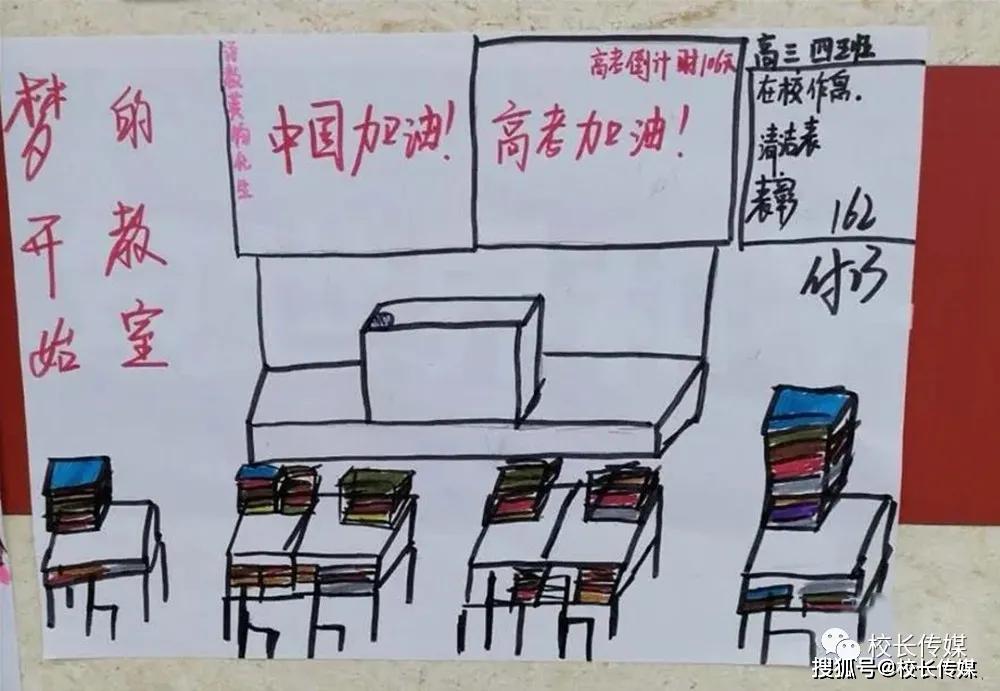 梦开始
的教室
语数英物化生
中国加油!
高考倒计时106天
高考加油!
高三四班
在校作息.
清洁表
表彰
162
校长传媒
搜狐号@校长传媒